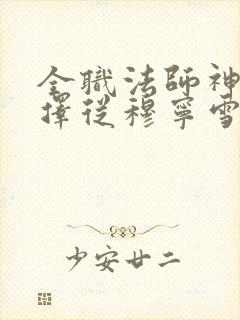 全職法師神
擇從穆寧雪
少安廿二